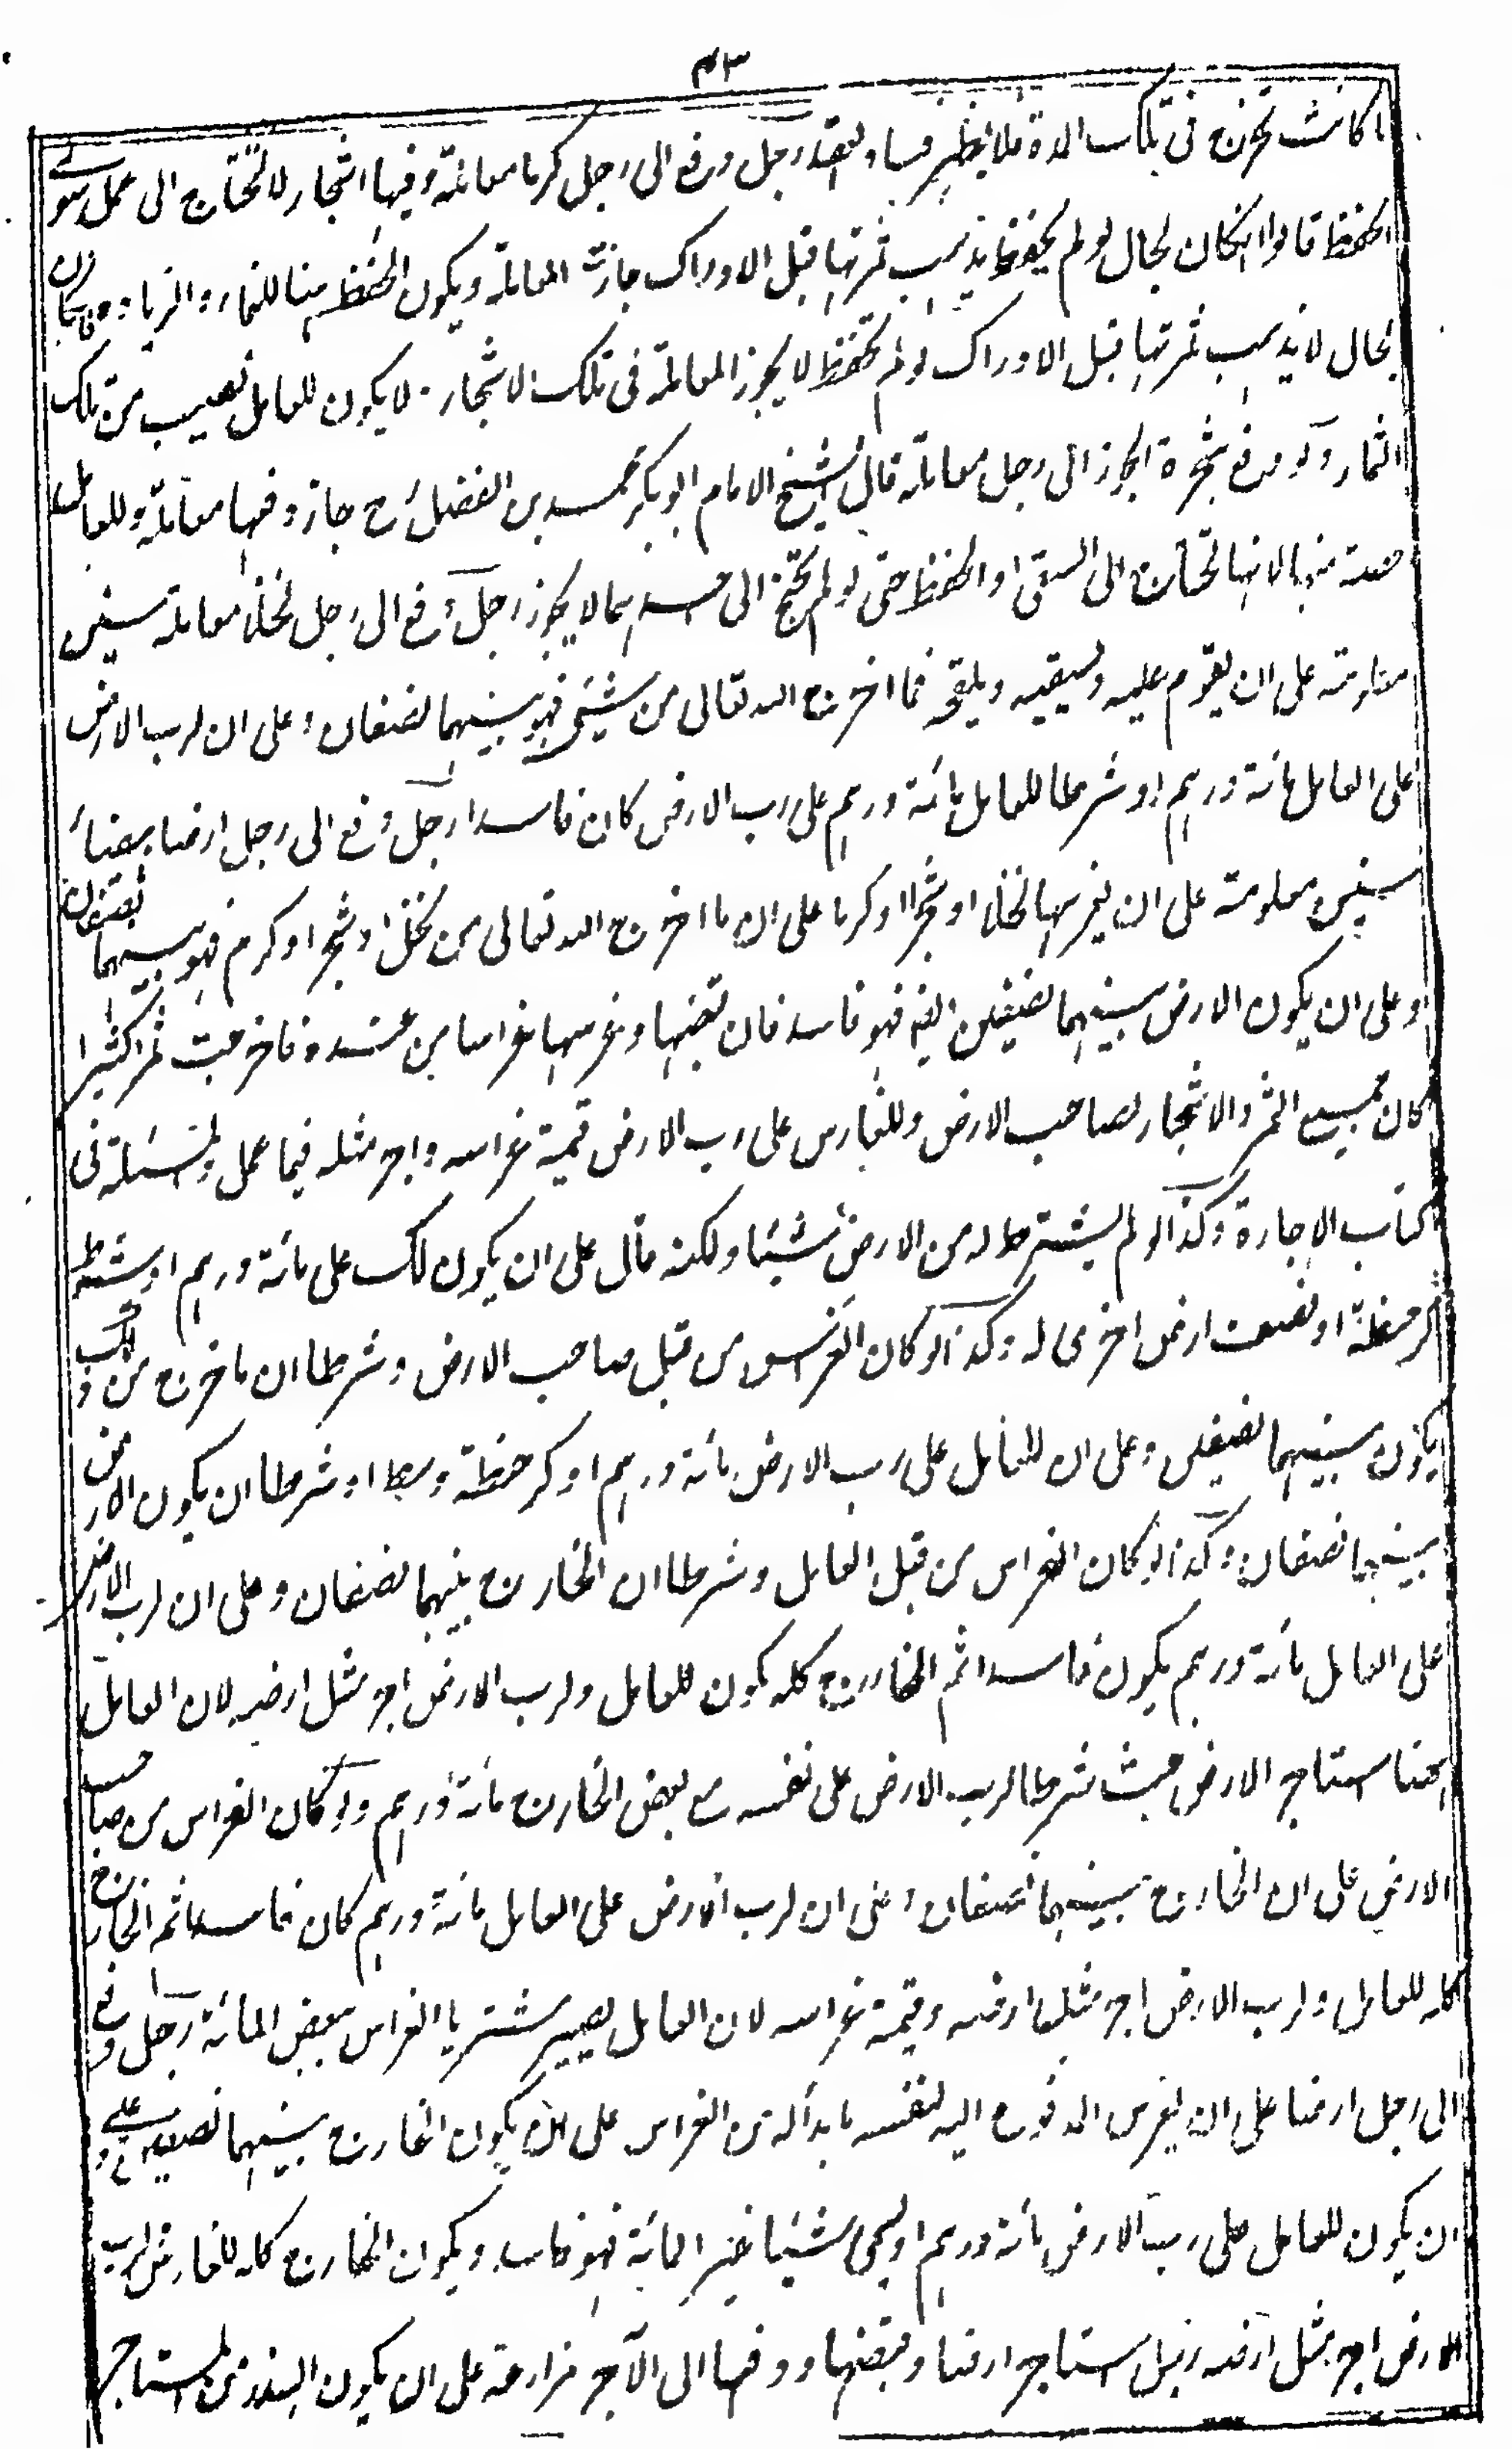 ٤٣
ما كانت تخرج فى تلك المدة فلا يظهر فساد العقد رجل دفع الى رجل كرما معاملة وفيها اشجار لا تحتاج الى عمل سوى
الحفظ قالوا ان كان بحال لو لم يحفظ يذهب ثمرتها قبل الادراك جازت المعاملة ويكون الحفظ هنا للنماء والزيادة وان كان
بحال لا يذهب ثمرتها قبل الادراك لو لم تحفظ لا يجوز المعاملة فى تلك الاشجار ولا يكون للعامل نصيب من تلك
الثمار ولو دفع شجرة الجوز الى رجل معاملة قال الشيخ الامام ابو بكر محمد بن الفضل رح جاز دفعها معاملة وللعامل
حصة منها لانها تحتاج الى السقى او الحفظ حتى لو لم تحتج الى احدهما لا يجوز رجل دفع الى رجل نخلا معاملة سنين
معلومة على ان يقوم عليه ويسقيه ويلقحه فما اخرج الله تعالى من شيئ فهو بينهما نصفان وعلى ان لرب الارض
على العامل مائة درهم او شرطا للعامل مائة درهم على رب الارض كان فاسدا رجل دفع الى رجل ارضا بيضاء
سنين معلومة على ان يغرسها نخلا او شجرا او كرما على ان ما اخرج الله تعالى من نخل او شجر او كرم فهو بينهما نصفان
او على ان يكون الارض بينهما نصفين ايضا فهو فاسد فان قبضها وغرسها غراسا من عنده فاخرجت ثمرا كثيرا
كان جميع الثمر والاشجار لصاحب الارض وللغارس على رب الارض قيمة غراسه واجر مثله فيما عمل والمسئلة فى
كتاب الاجارة وكذا لو لم يشترط له من الارض شيئا ولكنه قال على ان يكون لك على مائة درهم او شرط
كر حنطة او نصف ارض اخرى له وكذا لو كان الغرس من قبل صاحب الارض وشرطا ان ما خرج من ذلك
يكون بينهما نصفين وعلى ان للعامل على رب الارض مائة درهم او كر حنطة وسط او شرطا ان يكون الارض
بينهما نصفان وكذا لو كان الغراس من قبل العامل وشرطا ان الخارج بينهما نصفان وعلى ان لرب الارض
على العامل مائة درهم يكون فاسدا ثم الخارج كله يكون للعامل ولرب الارض اجر مثل ارضه لان العامل
ههنا استاجر الارض حيث شرطا لرب الارض على نفسه مع بعض الخارج مائة درهم ولو كان الغراس من صاحب
الارض على ان الخارج بينهما نصفان وعلى ان لرب الارض على العامل مائة درهم كان فاسدا ثم الخارج
كله للعامل ولرب الارض اجر مثل ارضه وقيمة غراسه لان العامل يصير مشتريا الغراس ببعض المائة رجل دفع
الى رجل ارضا على ان يغرس المدفوع اليه لنفسه ما بدا له من الغراس على ان يكون الخارج بينهما نصفين وعلى
ان يكون للعامل على رب الارض مائة درهم او سمى شيئا غير المائة فهو فاسد ويكون الخارج كله للغارس ولرب
الارض اجر مثل ارضه رجل استاجر ارضا وقبضها ودفعها الى الآجر مزارعة على ان يكون البذر من المستاجر